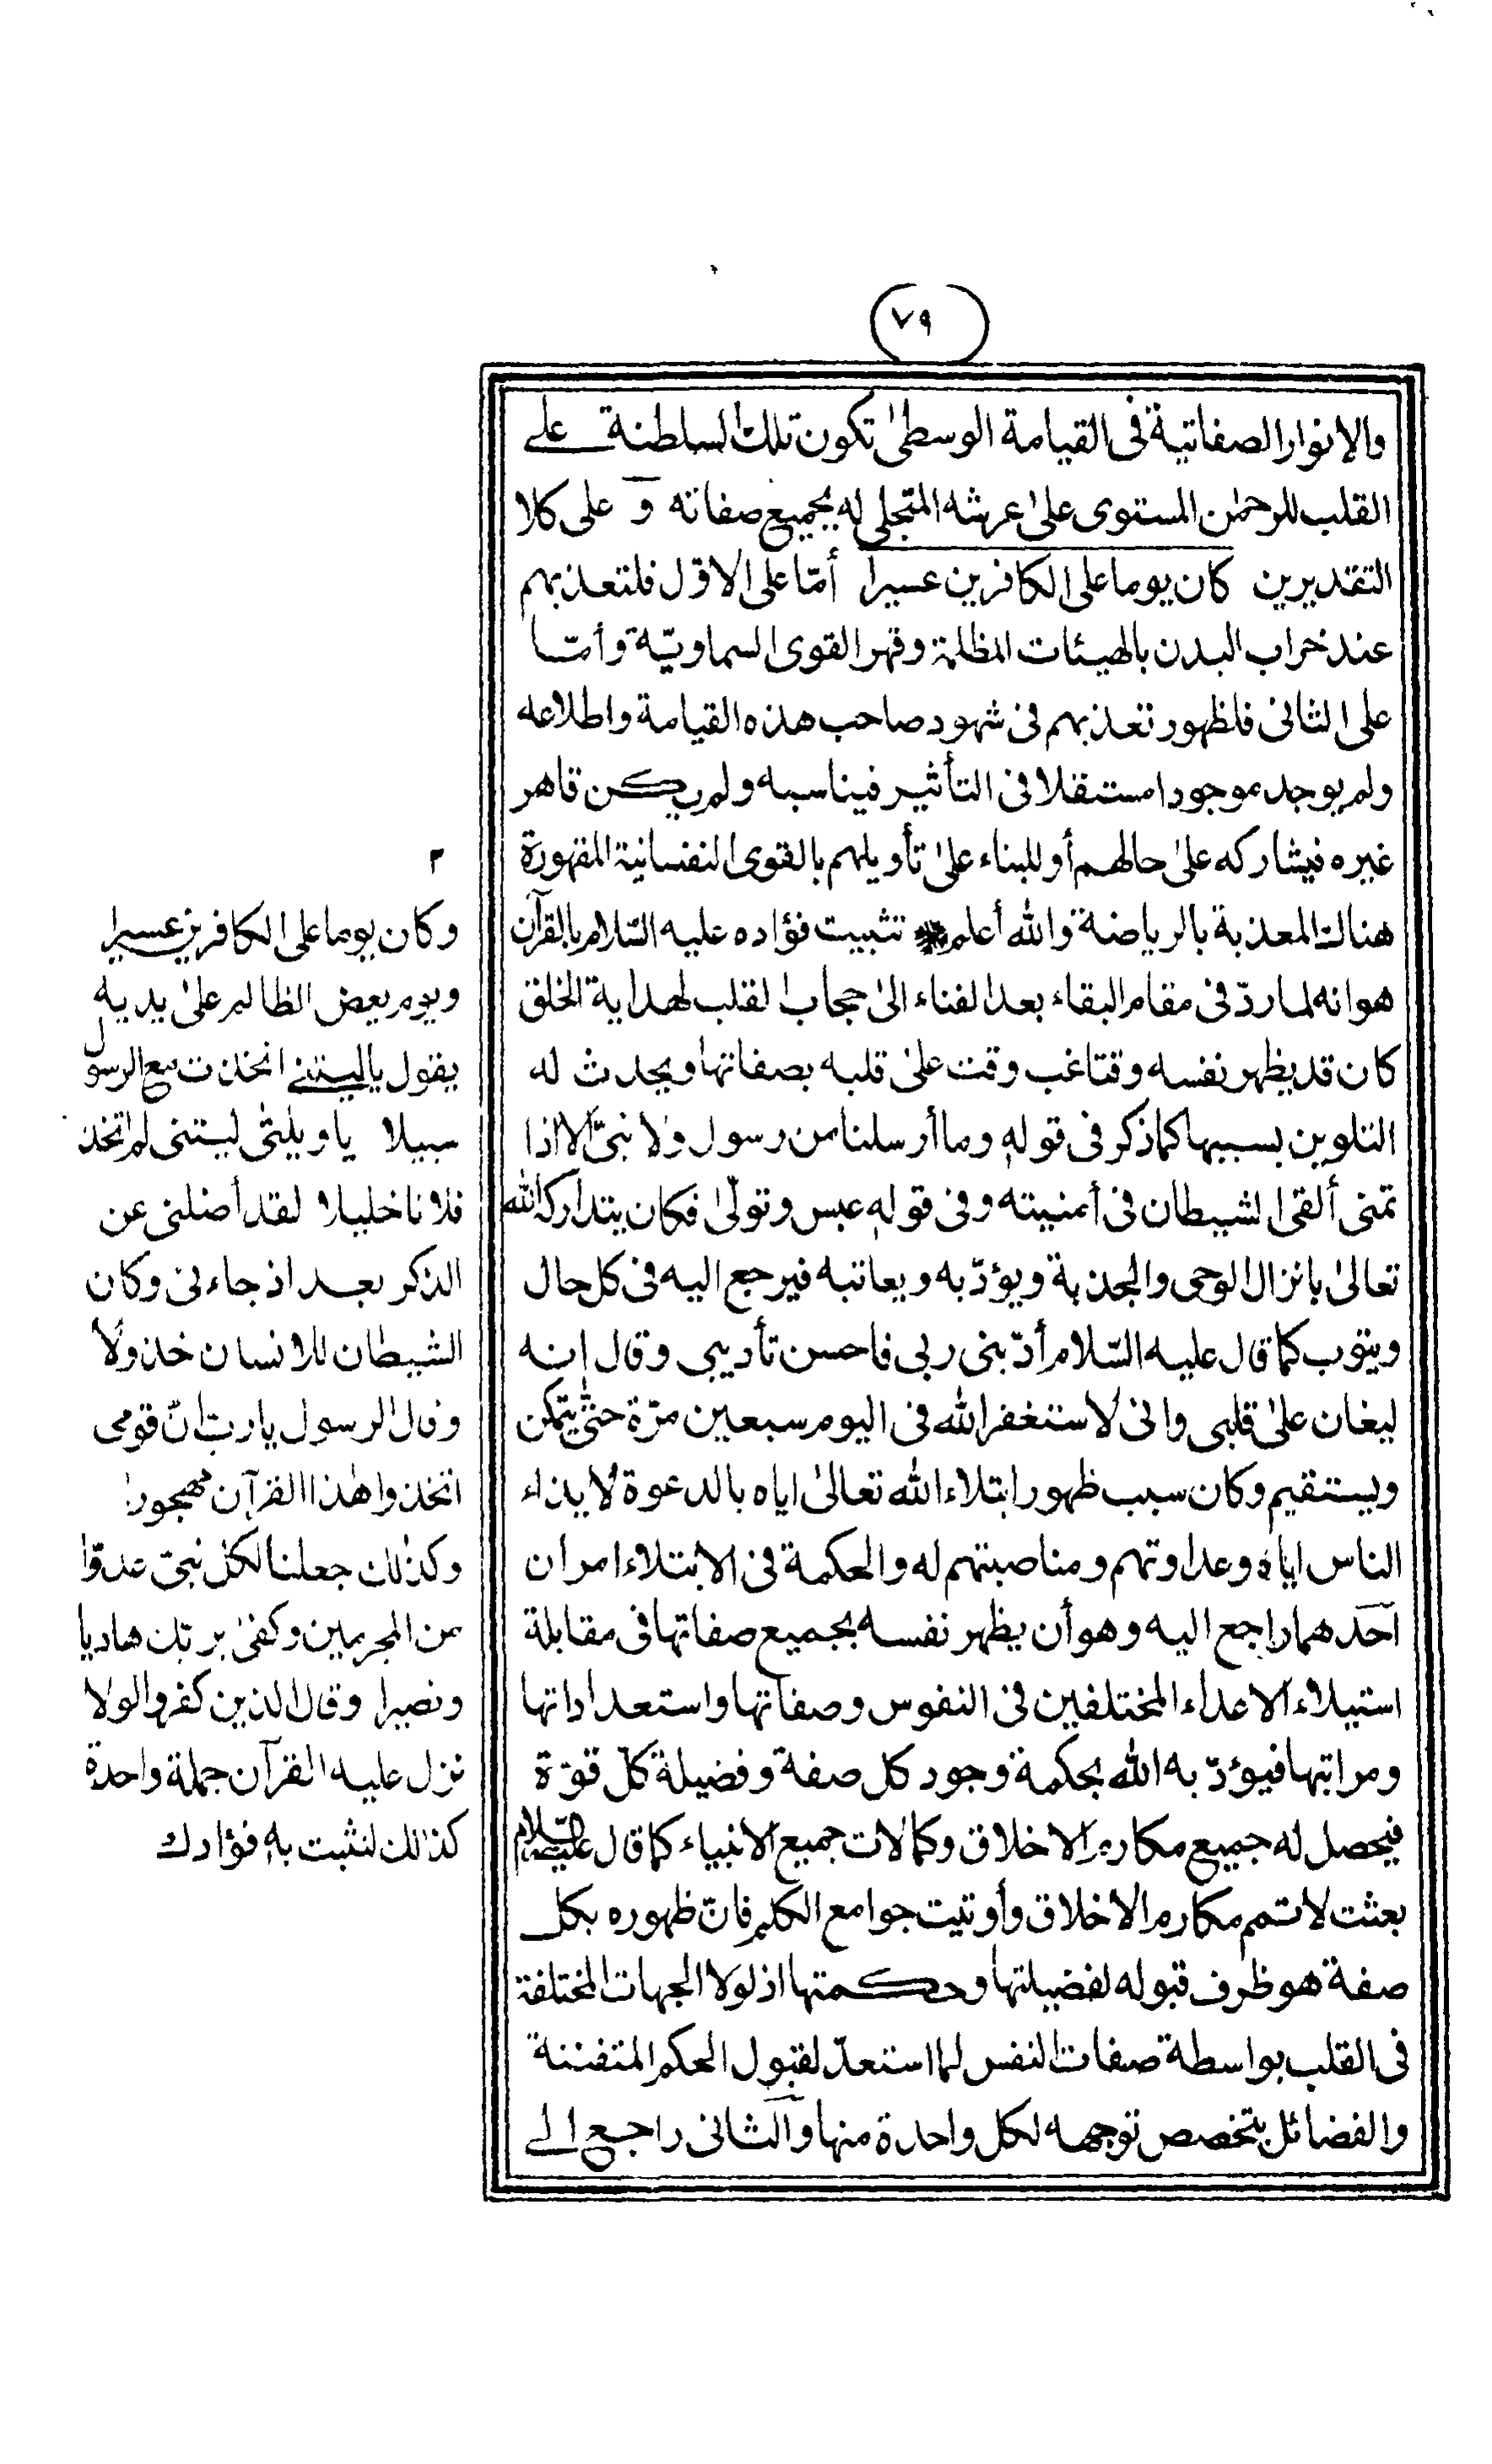 (٧٩)
والانوار الصفاتية فى القيامة الوسطىٰ تكون تلك السلطنة على
القلب للرحمٰن المستوى علىٰ عرشه المتجلى له بجميع صفاته و علىٰ كلا
التقديرين كان يوما على الكافرين عسيرا أمّا على الاوّل فلتعذبهم
عند خراب البدن بالهيئات المظلمة وقهر القوى السماويّة وأمّا
على الثانى فلظهور تعذبهم فى شهود صاحب هذه القيامة واطلاعه
ولم يوجد موجودا مستقلا فى التأثير فيناسبه ولم يكن قاهر
غيره فيشاركه علىٰ حالهم أو للبناء علىٰ تأويلهم بالقوى النفسانية المقهورة
هناك المعذبة بالرياضة والله أعلم تثبيت فؤاده عليه السّلام بالقرآن
هوانه لما ردّ فى مقام البقاء بعد الفناء الىٰ حجاب القلب لهداية الخلق
كان قد يظهر نفسه وقتا غب وقت علىٰ قلبه بصفاتها ويحدث له
التلوين بسببها كما ذكر فى قوله وما أرسلنا من رسول ولا نبىّ الا اذا
تمنى ألقى الشيطان فى أمنيته وفى قوله عبس وتولّىٰ فكان يتداركه الله
تعالىٰ بانزال الوحى والجذبة ويؤدّبه ويعاتبه فيرجع اليه فى كل حال
ويتوب كما قال عليه السّلام أدّبنى ربى فاحسن تأديبى وقال إنه
ليغان علىٰ قلبى وانى لاستغفر الله فى اليوم سبعين مرّة حتّىٰ يتمكن
ويستقيم وكان سبب ظهور ابتلاء الله تعالىٰ اياه بالدعوة لايذاء
الناس اياه وعداوتهم ومناصبتهم له والحكمة فى الابتلاء امران
أحدهما راجع اليه وهو أن يظهر نفسه بجميع صفاتها فى مقابلة
استيلاء الاعداء المختلفين فى النفوس وصفاتها واستعداداتها
ومراتبها فيؤدّبه الله بحكمة وجود كل صفة وفضيلة كلّ قوّة
فيحصل له جميع مكارم الاخلاق وكمالات جميع الانبياء كما قال عليه السّلام
بعثت لاتمم مكارم الاخلاق وأوتيت جوامع الكلم فانّ ظهوره بكل
صفة هو ظرف قبوله لفضيلتها وحكمتها اذ لولا الجهات المختلفة
فى القلب بواسطة صفات النفس لما استعدّ لقبول الحكم المتفننة
والفضائل بتخصص توجهه لكل واحدة منها والثانى راجع الى
٣
وكان يوما على الكافرين عسيرا
ويوم يعض الظالم علىٰ يديه
يقول يا ليتنى اتخذت مع الرسول
سبيلا يا ويلتىٰ ليتنى لم اتخذ
فلانا خليلا لقد أضلنى عن
الذكر بعد اذ جاءنى وكان
الشيطان للانسان خذولا
وقال الرسول يا ربّ انّ قومى
اتخذوا هٰذا القرآن مهجورا
وكذٰلك جعلنا لكل نبىّ عدوّا
من المجرمين وكفىٰ بربّك هاديا
ونصيرا وقال الذين كفروا لولا
نزل عليه القرآن جملة واحدة
كذٰلك لنثبت به فؤادك